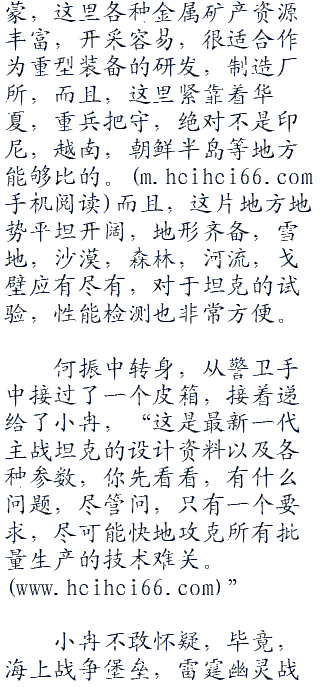 蒙，这里各种金属矿产资源
丰富，开采容易，很适合作
为重型装备的研发，制造厂
所，而且，这里紧靠着华
夏，重兵把守，绝对不是印
尼，越南，朝鲜半岛等地方
能够比的。(m.hcihci66.com
手机阅读)而且，这片地方地
势平坦开阔，地形齐备，雪
地，沙漠，森林，河流，戈
壁应有尽有，对于坦克的试
验，性能检测也非常方便。
何振中转身，从警卫手
中接过了一个皮箱，接着递
给了小冉，“这是最新一代
主战坦克的设计资料以及各
种参数，你先看看，有什么
问题，尽管问，只有一个要
求，尽可能快地攻克所有批
量生产的技术难关。
(www.hcihci66.com)”
小冉不敢怀疑，毕竟，
海上战争堡垒，雷霆幽灵战